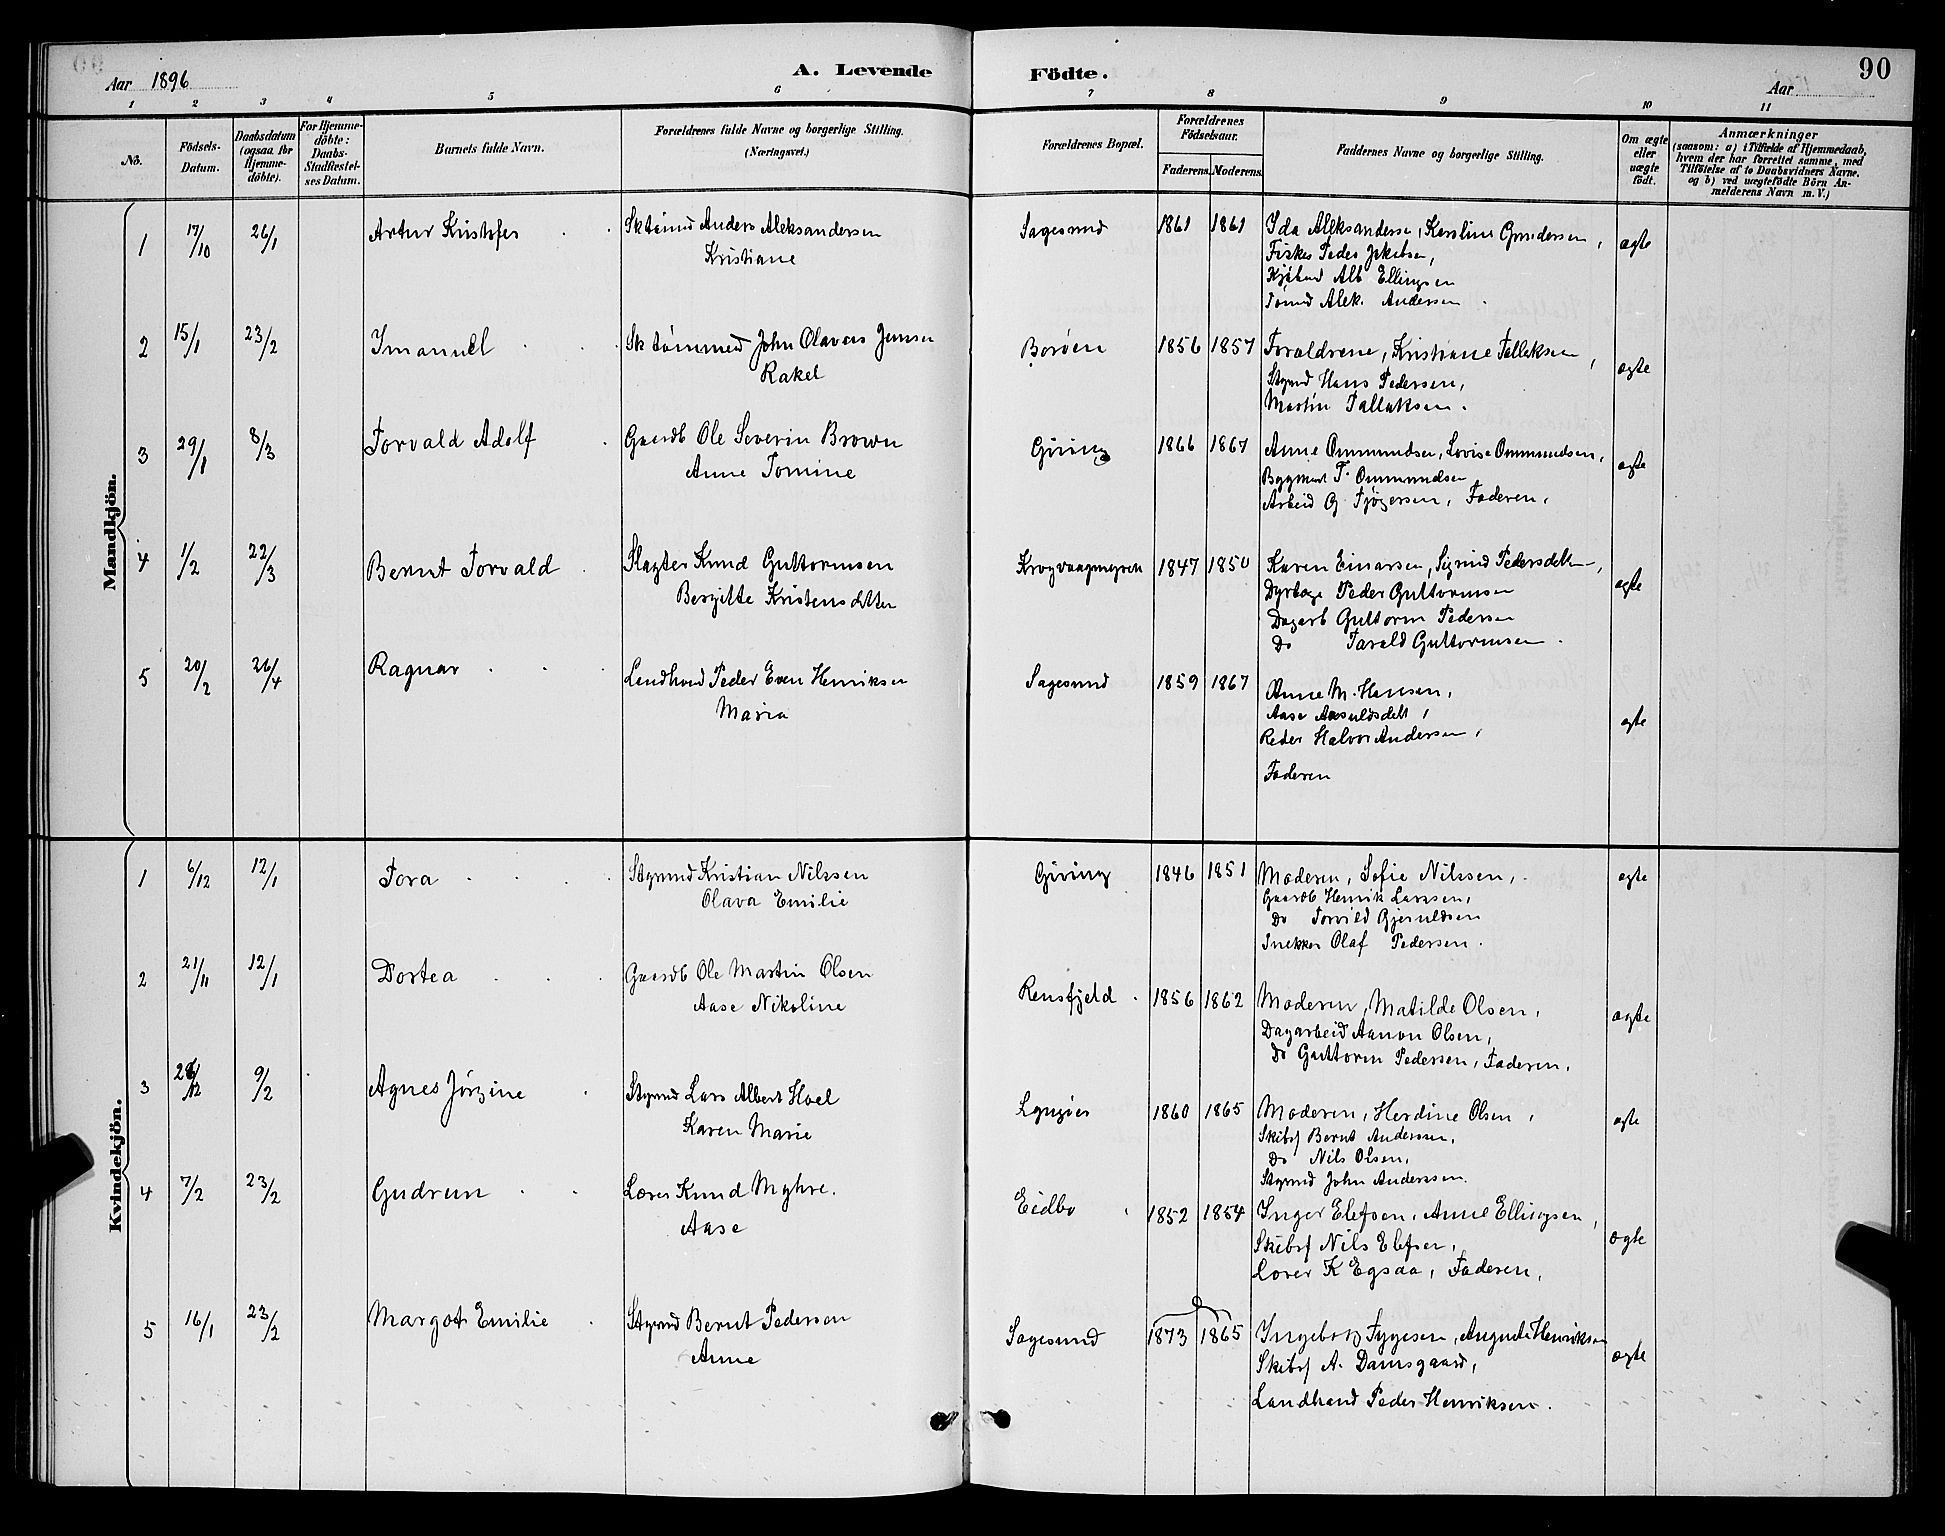 Aar 1896
A. Levende
Födte.
90
Aar
1 2 3 4 5 6 7 8 9 10 11
No.
Födsels-
Datum.
Daabsdatum
(ogsaa for
Hjemme-
döbte).
For Hjemme-
döbte:
Daabs-
Stadfæstel-
ses Datum.
Barnets fulde Navn.
Forældrenes fulde Navne og borgerlige Stilling.
(Næringsvei.)
Forældrenes Bopæl.
Forældrenes
Födselsaar.
Faderens. Moderens.
Faddernes Navne og borgerlige Stilling.
Om ægte
eller
uægte
født.
Anmærkninger
(saasom: a) i Tilfælde af Hjemmedaab,
hvem der har forrettet samme, med
Tilføielse af to Daabsvidners Navne.
og b) ved uægtefødte Börn An-
melderens Navn m. V.)
Mandkjön.
1 17/10 26/1 Artur Kristofer Sktømd Anders Aleksandersen Sagesund 1861 1861 Ida Aleksandersen, Karoline Gundersen, ægte
Kristiane Fisker Peder Jakobsen,
Alb Ellingsen
Tømd Alek. Andersen
2 15/1 23/2 Imanuel Sktømmed John Olaves Jensen Borøen 1856 1857 Forældrene, Kristiane Tallaksen, ægte
Rakel Stymd Hans Pedersen,
Martin Tallaksen.
3 29/1 8/3 Torvald Adolf Gaardb Ole Severin Brown Giving 1866 1867 Anne Ommundsen, Lovise Ommundsen, ægte
Anne Tomine Bygmest T. Ommundsen
Arbeid G. Tjøgersen, Faderen,
4 1/2 22/3 Bernt Torvald Slagter Knud Guttormsen Krogvaagmyren 1847 1850 Karen Einarsen, Sigrid Pedersdatter, ægte
Bergitte Kristensdatter Dyrlæge Peder Guttormsen
Dagarb Guttorm Pedersen
Do Tarald Guttormsen
5 20/2 26/4 Ragnar Landhand Peder Even Henriksen Sagesund 1859 1867 Anne M. Hansen, ægte
Maria Aase Aasuldsdatt,
Reder Halvor Andersen,
Faderen
Kvindekjön.
1 6/12 12/1 Tora Stymd Kristian Nilssen Giving 1846 1851 Moderen, Sofie Nilssen, ægte
Olava Emilie Gaardb Henrik Larssen,
Do Torvild Gjeruldsen
Snekker Olaf Pedersen.
2 21/11 12/1 Dortea Gaardb Ole Martin Olsen Rensfjeld 1856 1862 Moderen, Matilde Olsen, ægte
Aase Nikoline Dagarbeid Aanon Olsen,
Do Guttorm Pedersen, Faderen.
3 28/12 9/2 Agnes Jørgine Stymd Lars Albert Hoel Lyngøer 1860 1865 Moderen, Herdine Olsen, ægte
Karen Marie Skibsf Bernt Anderssen,
Do Nils Olsen,
Stymd John Anderssen.
4 7/2 23/2 Gudrun Lærer Knud Myhre. Eidbo 1852 1854 Inger Elefsen, Anne Ellingsen, ægte
Aase Skibsf Nils Elefsen,
Lærer K Egsaa, Faderen,
5 16/1 23/2 Margot Emilie Stymd Bernt Pedersen Sagesund 1873 1865 Ingeborg Tygesen, Auguste Henriksen ægte
Anne Skibsf A. Damsgaard,
Landhand Peder Henriksen.